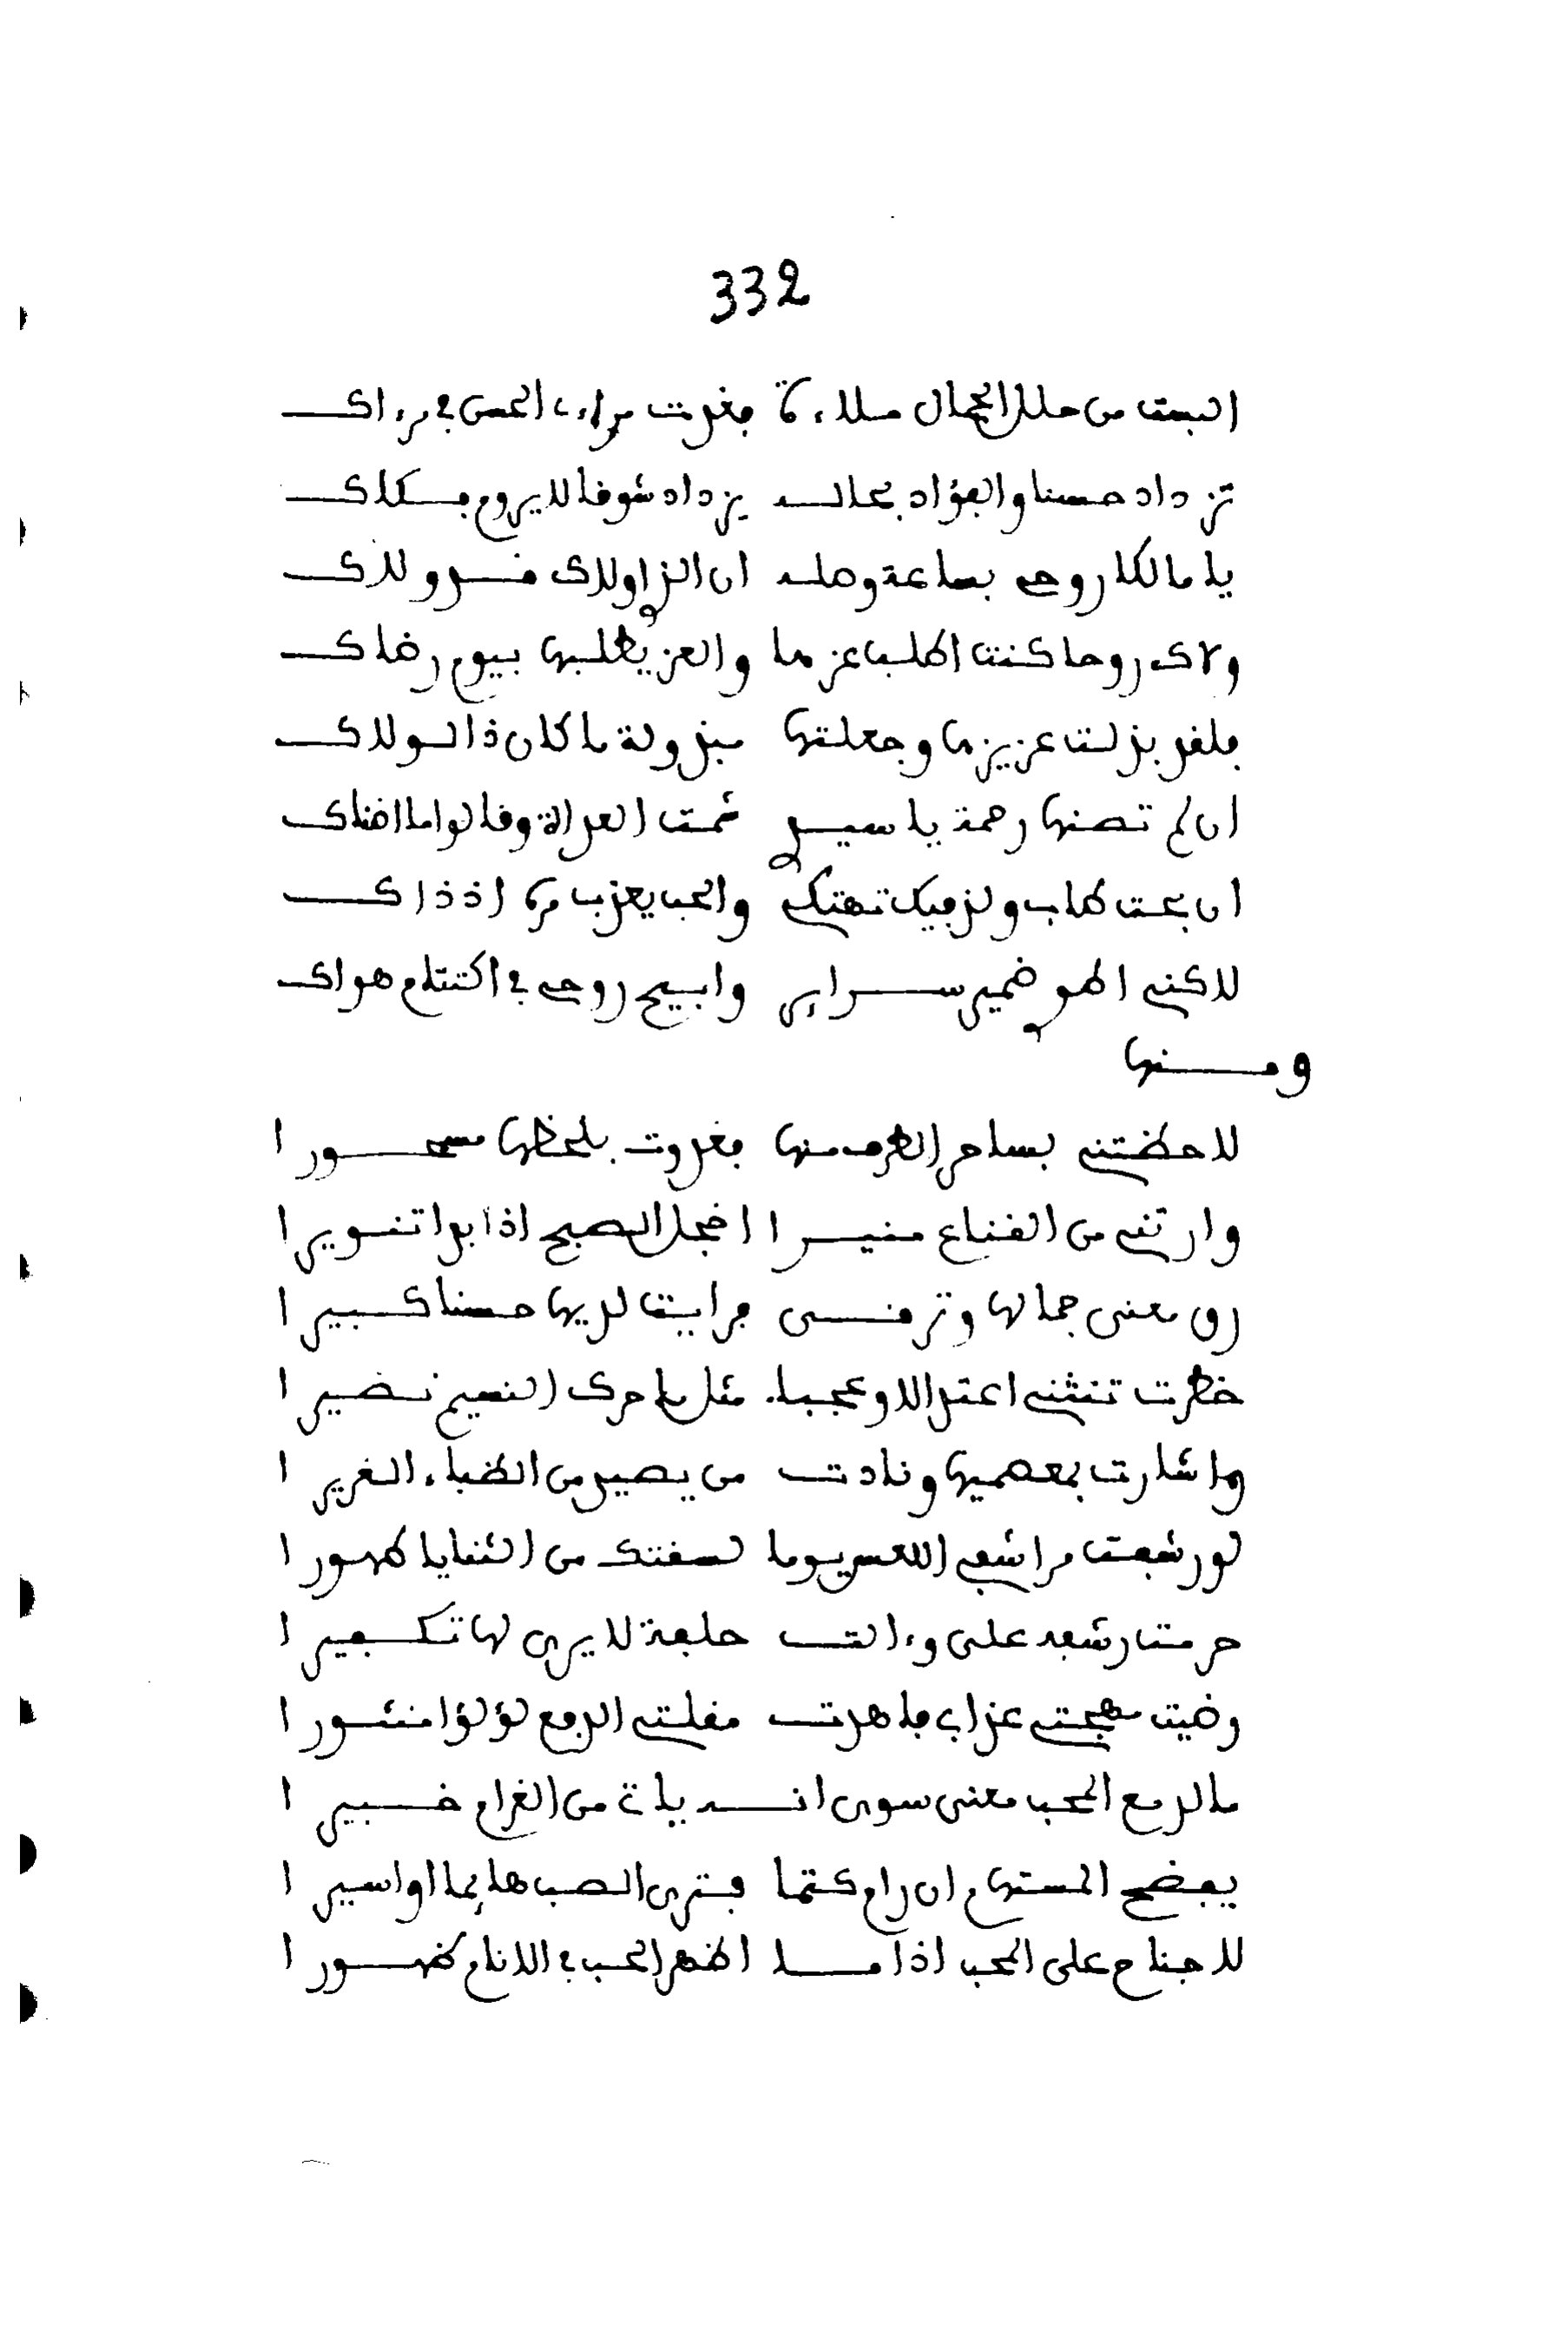 332
البست من حلل الجمال ملاءة فغدت مراءت الحسن في مرءاك
تزداد حسنا والفؤاد بحاله يزداد شوقا لا يروم فكاك
يا مالكا روحي بساعة وصله ان الذ اولاك قد ولاك
ولاك روحا كنت اطلب عزها والعز يطلبها بيوم رضاك
فلقد بذلت عزيزها وجعلتها مبذولة ما كان ذا لولاك
ان لم تصنها رحمة يا سيد شمت العداة وقالوا ما اضناك
ان بحت طاب ولذ فيك تهتكي والحب يعذب مرة اذ ذاك
لاكنني اطو ضمير سرايري وابيح روحي في اكتتام هواك
ومنها
لاحظتني بساحر الطرف منها فغدوت بلحظها مسحورا
وارتني من القناع منيرا اخجل الصبح اذا بدا تنويرا
رق معنى جمالها وتر فسى فرايت لديها حسنا كبيرا
خطرت تنثني اعتدالا وعجبا مثل ما حرك النسيم نضيرا
واشارت بمعصميها ونادت من يصيد من الظباء الغريرا
لو رشفت مراشفي اللعس يوما لسقتك من الثنايا طهورا
حرمت رشفه علي وءالت حلفة لا يرى لها تكفيرا
رضيت مهجتي عذابي فاهدت مقلتي الدمع لؤلؤا منثورا
ما لدمع المحب معنى سوى انه يات من الغرام خبيرا
يفضح المستهام ان رام كتما فترى الصب هايما او اسيرا
لا جناح على المحب اذا ما اظهر الحب في الانام ظهورا